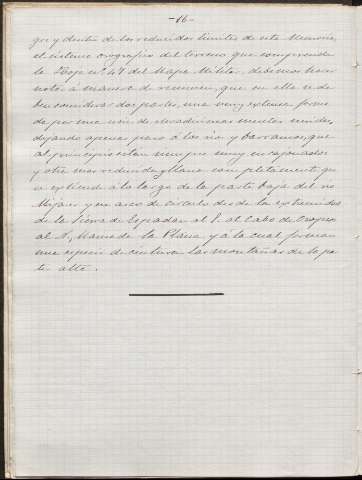 -16-
que y dentro de los reducidos limites de esta Memoria,
el sistema orografico del terreno que comprende
la Hoja nº 47 del Mapa Militar, debemos hacer
notar a manera de resumen, que en ella se de-
ben considerar dos partes, una muy extensa forma-
da por una serie de elevadisimas muelas unidas,
dejando apenas paso á los rios y barrancos, que
al principio están siempre muy encajonados
y otra mas reducida y llana completamente, que
se extiende á lo largo de la parte baja del rio
Mijares y en arco de circulo desde las extremidades
de la Sierra de Espadan al S. al Cabo de Oropesa
al N, llamada la Plana, y á la cual forman
una especie de cintura las montañas de la par-
te alta.